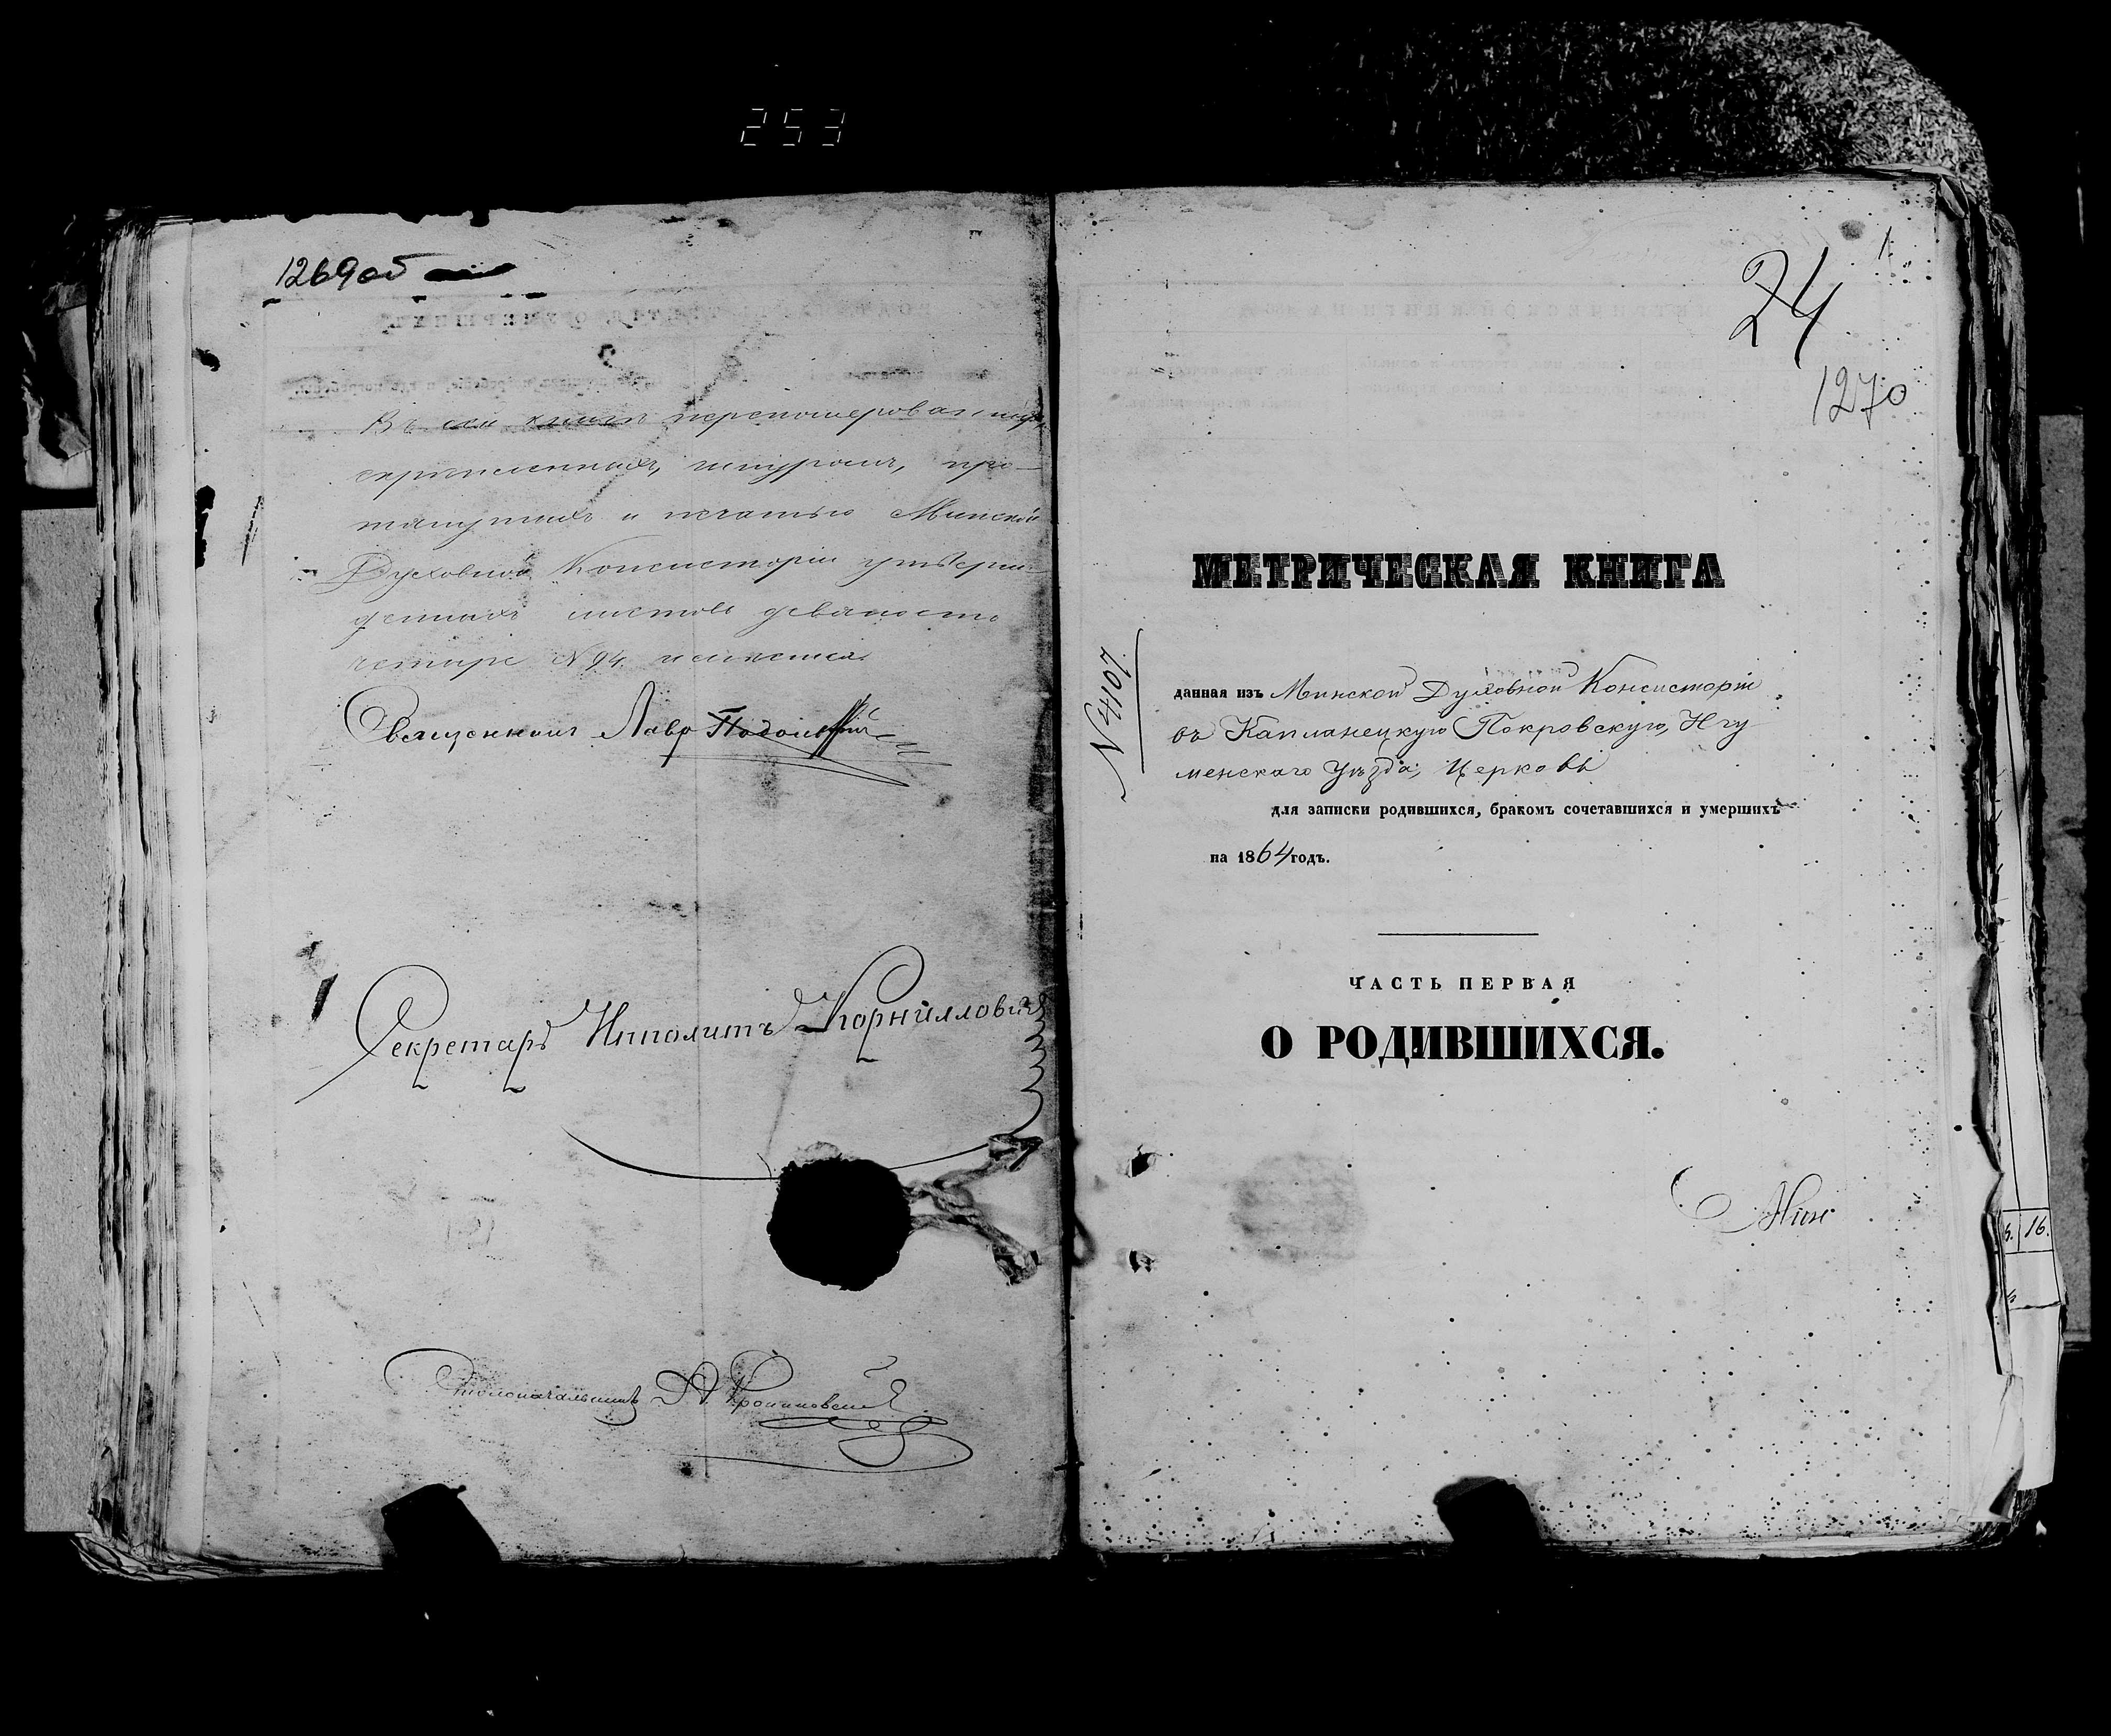 253
1269об
Въ сей книгѣ перенумерованныхъ,
скрѣпленныхъ, шнуромъ, про-
тянутыхъ и печатью Минской
Духовной Консисторіи утверж-
денныхъ листовъ девяносто
четыре №94. имѣется.
Священникъ Лавр
Секретарь Ипполитъ Корниллович
Столоначальникъ
1
24
1270
МЕТРИЧЕСКАЯ КНИГА
№4107
данная изъ Минской Духовной Консисторіи
въ Капланецкую Покровскую, Игу
менскаго Уѣзда, Церковь
для записки родившихся, бракомъ сочетавшихся и умершихъ
на 1864 годъ.
ЧАСТЬ ПЕРВАЯ
О РОДИВШИХСЯ.
Мин
16.